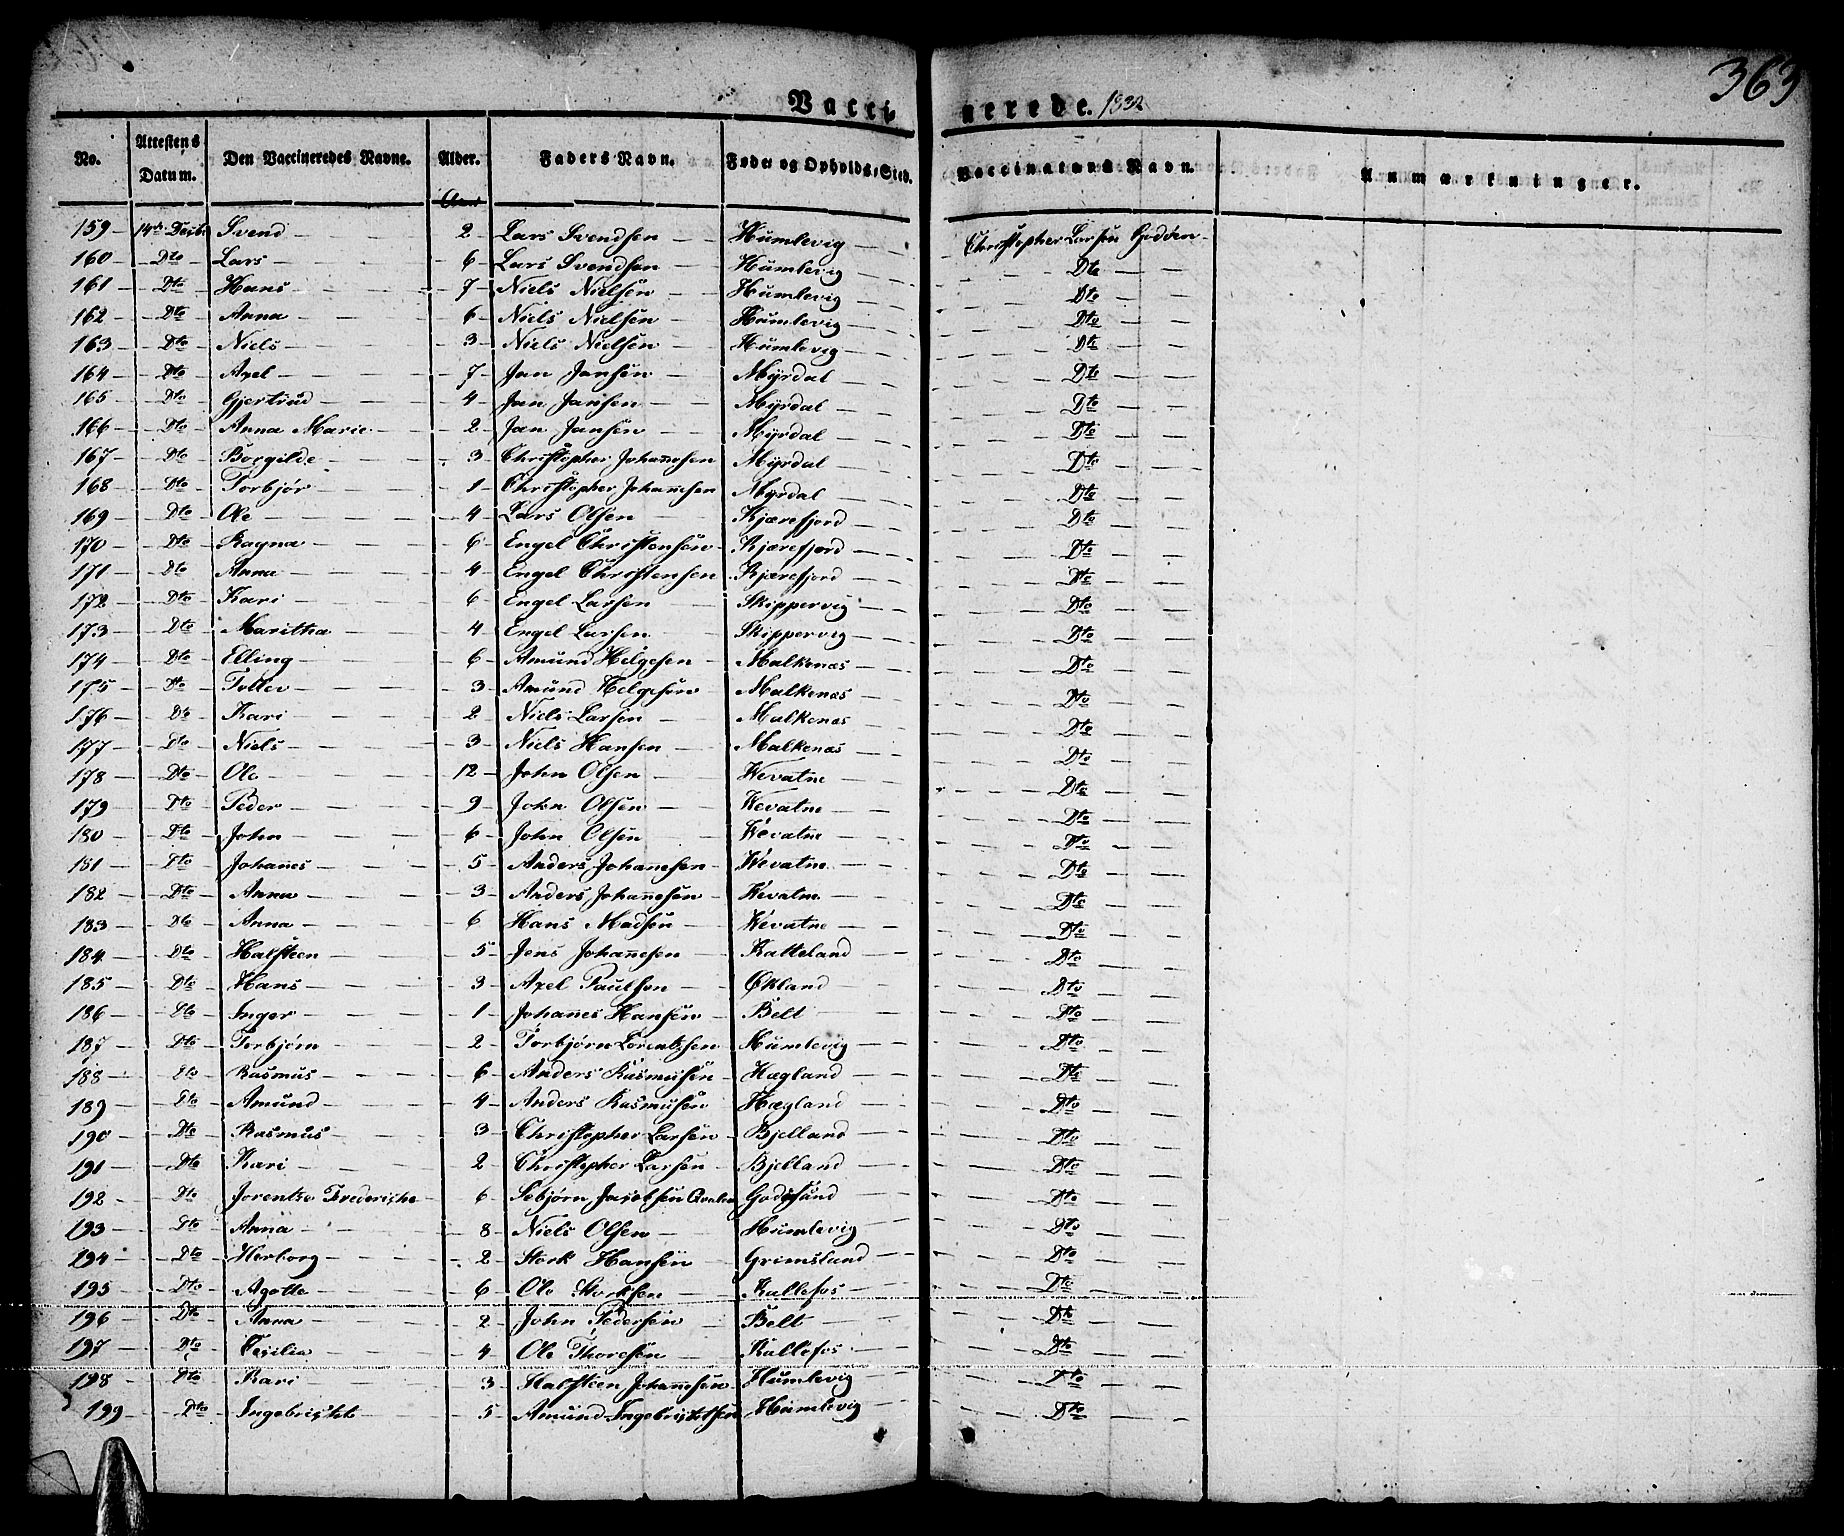 363
Vacci nerede. 1832
No. Attestens Datum. Den Vaccineredes Navne. Alder. Faders Navn. Føde og Opholds-Sted. Vaccinateurs Navn. Anmærkninger.
159 14de Decbr Svend 2 Lars Svendsen Humlevig Christopher Larsen
160 Dto Lars 6 Lars Svendsen Humlevig Dto
161 Dto Hans 7 Niels Nielsen Humlevig Dto
162 Dto Anna 6 Niels Nielsen Humlevig Dto
163 Dto Niels 3 Niels Nielsen Humlevig Dto
164 Dto Axel 7 Jan Jansen Myrdal Dto
165 Dto Gjertrud 4 Jan Jansen Myrdal Dto
166 Dto Anna Marie 2 Jan Jansen Myrdal Dto
167 Dto Borgilde 3 Christopher Johannesen Myrdal Dto
168 Dto Torbjør 1 Christopher Johannesen Myrdal Dto
169 Dto Ole 4 Lars Olsen Kjærefjord Dto
170 Dto Ragna 6 Engel Christensen Kjærefjord Dto
171 Dto Anna 4 Engel Christensen Kjærefjord Dto
172 Dto Kari 6 Engel Larsen Skippervig Dto
173 Dto Maritha 4 Engel Larsen Skippervig Dto
174 Dto Elling 6 Amund Helgesen Malkenæs Dto
175 Dto Tollev 3 Amund Helgesen Malkenæs Dto
176 Dto Kari 2 Niels Larsen Malkenæs Dto
177 Dto Niels 3 Niels Hansen Malkenæs Dto
178 Dto Ole 12 John Olsen Wevatne Dto
179 Dto Peder 9 John Olsen Wevatne Dto
180 Dto John 6 John Olsen Wevatne Dto
181 Dto Johannes 5 Anders Johannesen Wevatne Dto
182 Dto Anna 3 Anders Johannesen Wevatne Dto
183 Dto Anna 6 Hans Madsen Wevatne Dto
184 Dto Halsteen 5 Jens Johannesen Kalteland Dto
185 Dto Hans 3 Axel Paulsen Økland Dto
186 Dto Inger 1 Johannes Hansen Belt Dto
187 Dto Torbjørn 2 Torbjørn Lorentzsen Humlevig Dto
188 Dto Rasmus 6 Anders Rasmusen Hægland Dto
189 Dto Amund 4 Anders Rasmusen Hægland Dto
190 Dto Rasmus 3 Christopher Larsen Bjelland Dto
191 Dto Kari 2 Christopher Larsen Bjelland Dto
192 Dto Jorentze Frederiche 6 Sebjørn Jacobsen Qvalen Godøsund Dto
193 Dto Anna 8 Niels Olsen Humlevig Dto
194 Dto Herborg 2 Stork Hansen Grimsland Dto
195 Dto Agotte 6 Ole Storksen Kallefos Dto
196 Dto Anna 2 John Pedersen Belt Dto
197 Dto Cesilia 4 Ole Thoresen Kallefos Dto
198 Dto Kari 3 Halsteen Johannesen Humlevig Dto
199 Dto Ingebrigtet 5 Amund Ingebrigtsen Humlevig Dto